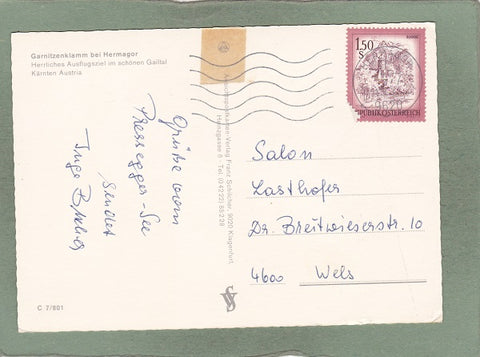 Garnitzenklamm bei Hermagor
Herrliches Ausflugsziel im schönen Gailtal
Kärnten Austria
Grüße vom
Pressegger-See
sendet
Inge
Ansichtspostkarten-Verlag Franz Schilcher, 9020 Klagenfurt,
1.50
S
REPUBLIK ÖSTERREICH
9620
Salon
Lasthofer
Dr. Breitwieserstr. 10
4600 Wels
C 7/801